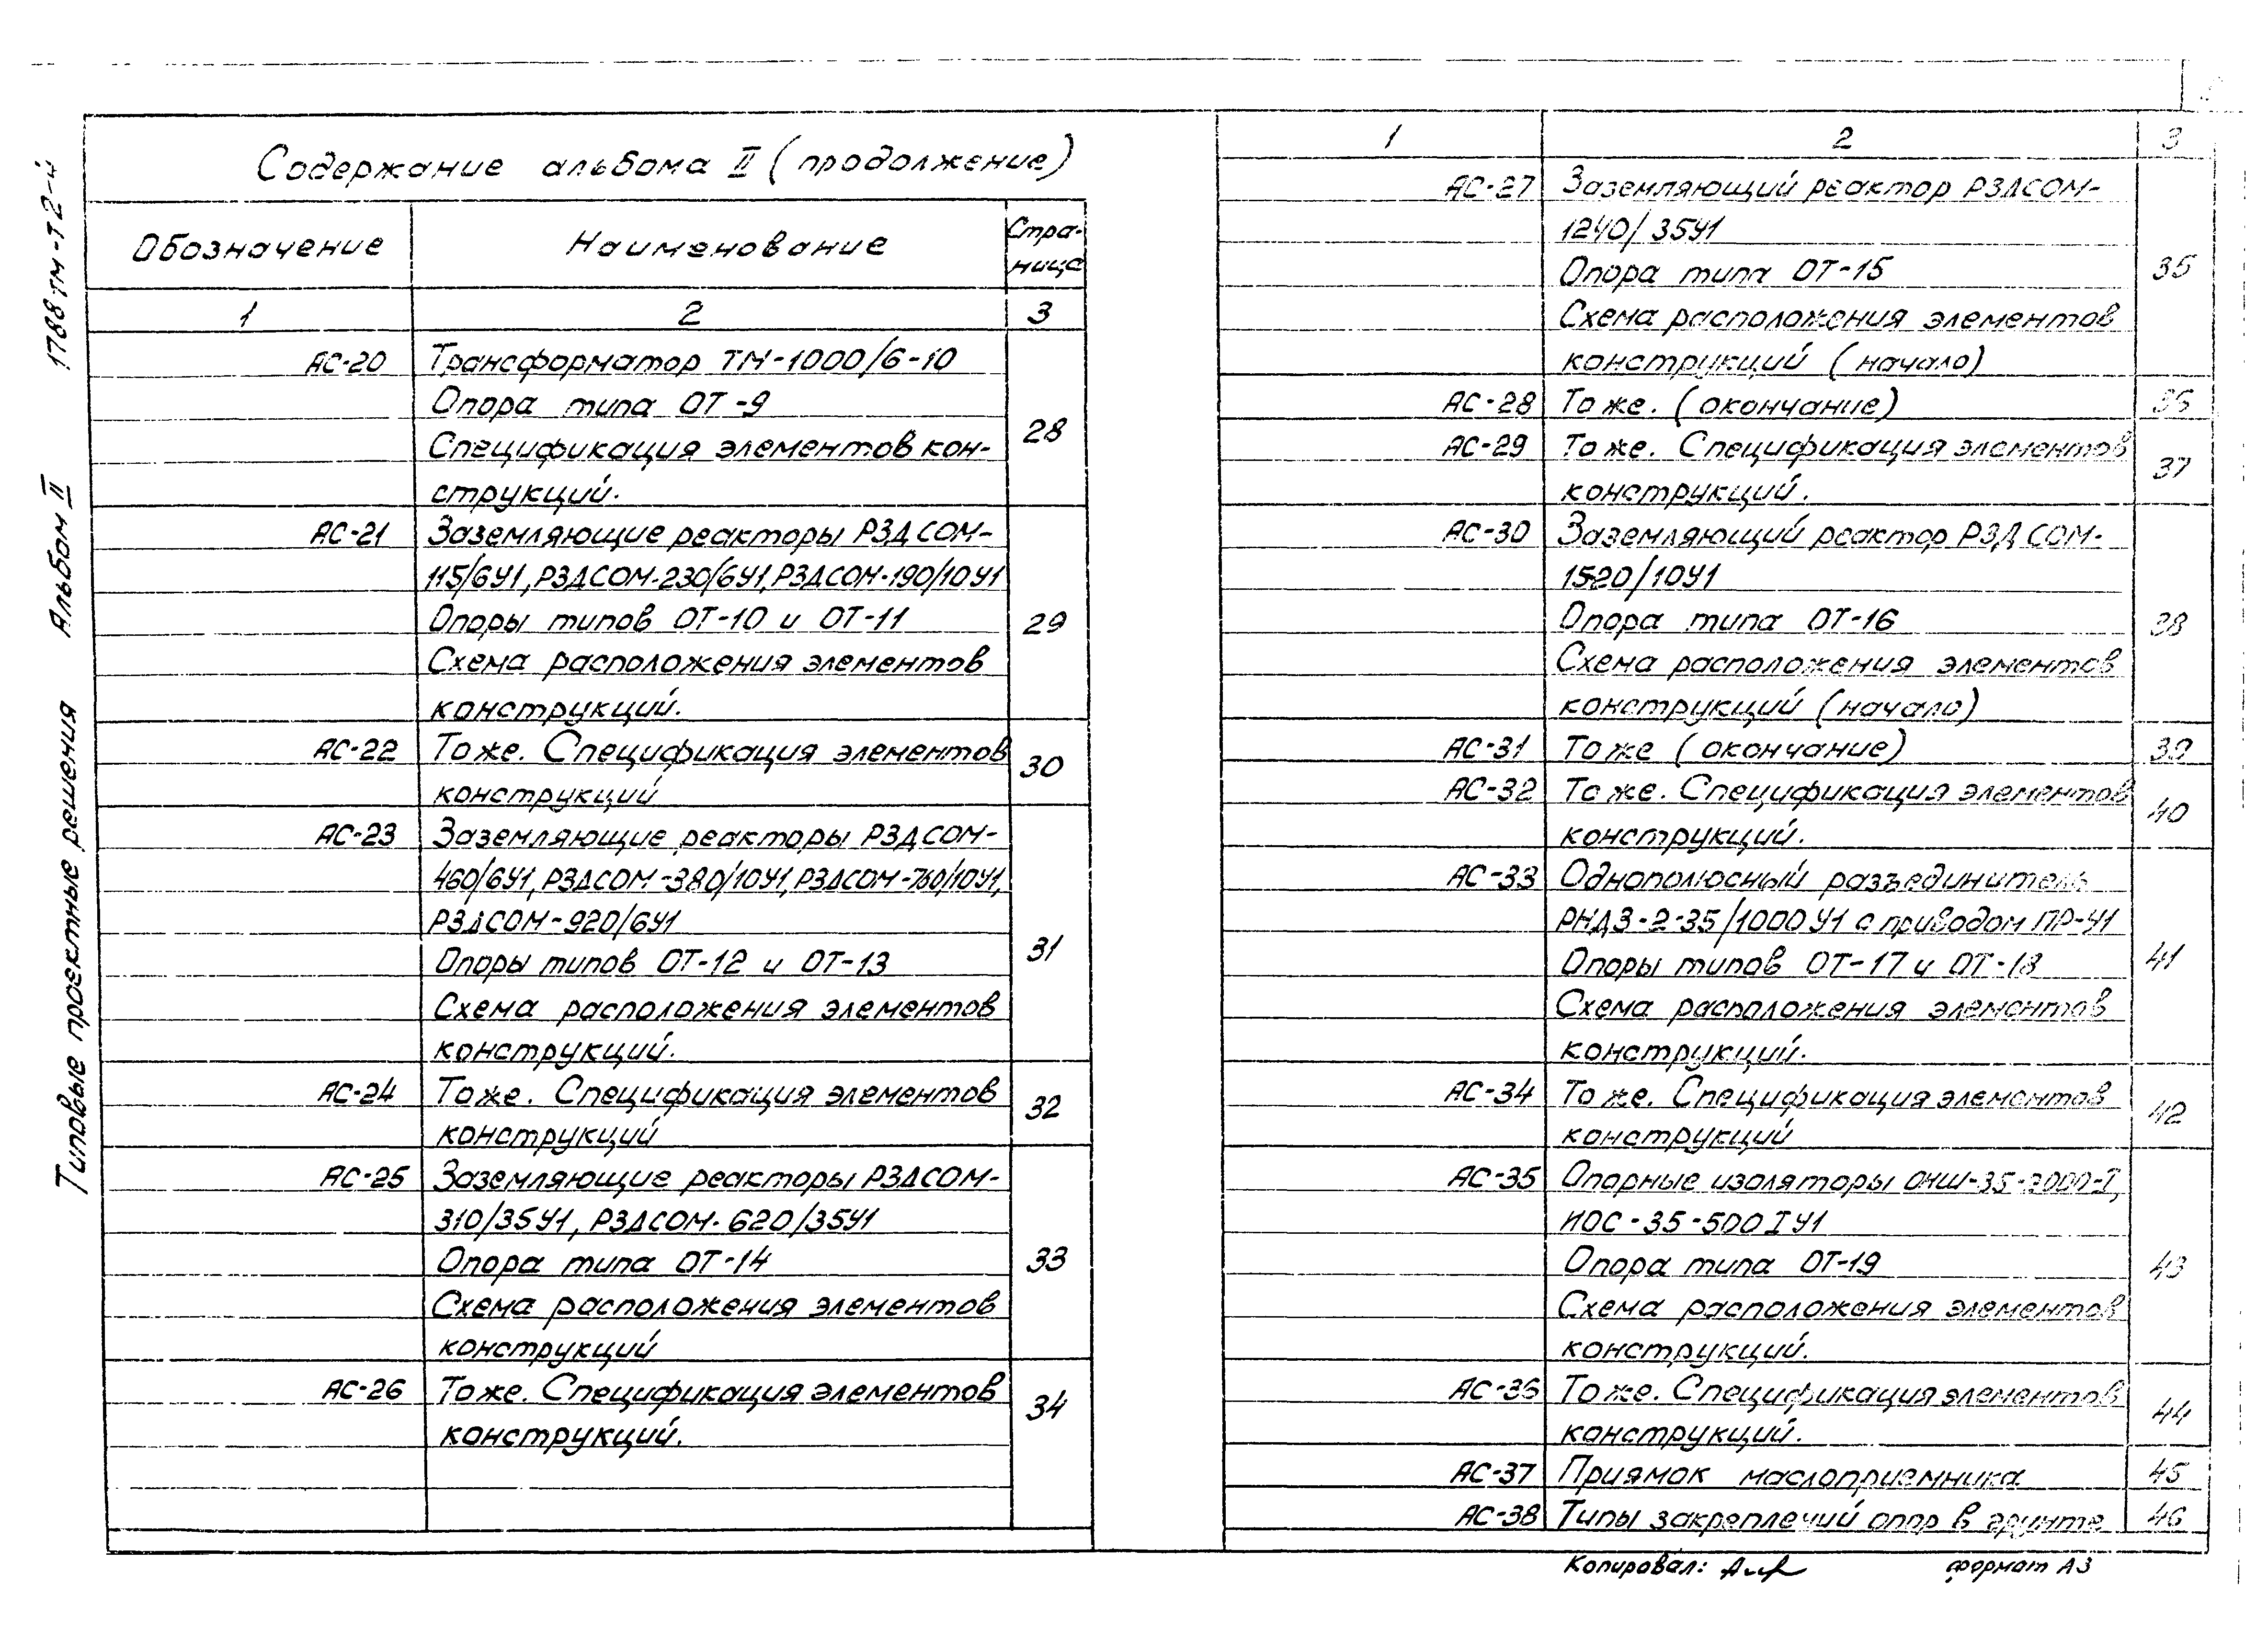 Типовые проектные решения Альбом II 1788тм-Т2-4
Содержание альбома II (продолжение)
Обозначение Наименование Стра-
ница
1 2 3
АС-20 Трансформатор ТМ-1000/6-10
Опора типа ОТ-9
28
Спецификация элементов кон-
струкций.
АС-21 Заземляющие реакторы РЗДСОМ-
115/6У1, РЗДСОМ-230/6У1, РЗДСОМ-190/10У1
Опоры типов ОТ-10 и ОТ-11 29
Схема расположения элементов
конструкций.
АС-22 То же. Спецификация элементов
30
конструкций
АС-23 Заземляющие реакторы РЗДСОМ-
460/6У1, РЗДСОМ-380/10У1, РЗДСОМ-760/10У1,
РЗДСОМ-920/6У1
Опоры типов ОТ-12 и ОТ-13 31
Схема расположения элементов
конструкций.
АС-24 То же. Спецификация элементов
32
конструкций
АС-25 Заземляющие реакторы РЗДСОМ-
310/35У1, РЗДСОМ-620/35У1
Опора типа ОТ-14 33
Схема расположения элементов
конструкций
АС-26 То же. Спецификация элементов
34
конструкций.
1 2 3
АС-27 Заземляющий реактор РЗДСОМ-
1240/35У1
Опора типа ОТ-15 35
Схема расположения элементов
конструкций (начало)
АС-28 То же. (окончание) 36
АС-29 То же. Спецификация элементов
37
конструкций.
АС-30 Заземляющий реактор РЗДСОМ-
1520/10У1
Опора типа ОТ-16 38
Схема расположения элементов
конструкций (начало)
АС-31 То же (окончание) 39
АС-32 То же. Спецификация элементов
40
конструкций.
АС-33 Однополюсный разъединитель
РНДЗ-2-35/1000У1 с приводом ПР-У1
Опоры типов ОТ-17 и ОТ-18 41
Схема расположения элементов
конструкций.
АС-34 То же. Спецификация элементов
42
конструкций
АС-35 Опорные изоляторы ОНШ-35-2000-I,
ИОС-35-500 I У1
Опора типа ОТ-19 43
Схема расположения элементов
конструкций.
АС-36 То же. Спецификация элементов
44
конструкций.
АС-37 Приямок маслоприемника 45
АС-38 Типы закреплений опор в грунте 46
Копировал: формат А3